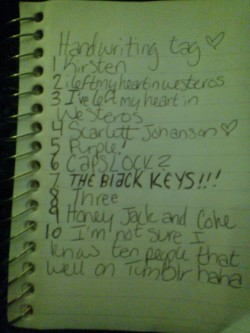 Handwriting tag ♡
1 Kirsten
2 ileftmyheartinwesteros
3 I've left my heart in
Westeros
4 Scarlett Johanson ♡
5 Purple!
6 CAPSLOCKZ
7 THE BLACK KEYS!!!
8 Three
9 Honey Jack and Coke
10 I'm not sure I
know ten people that
well on Tumblr haha